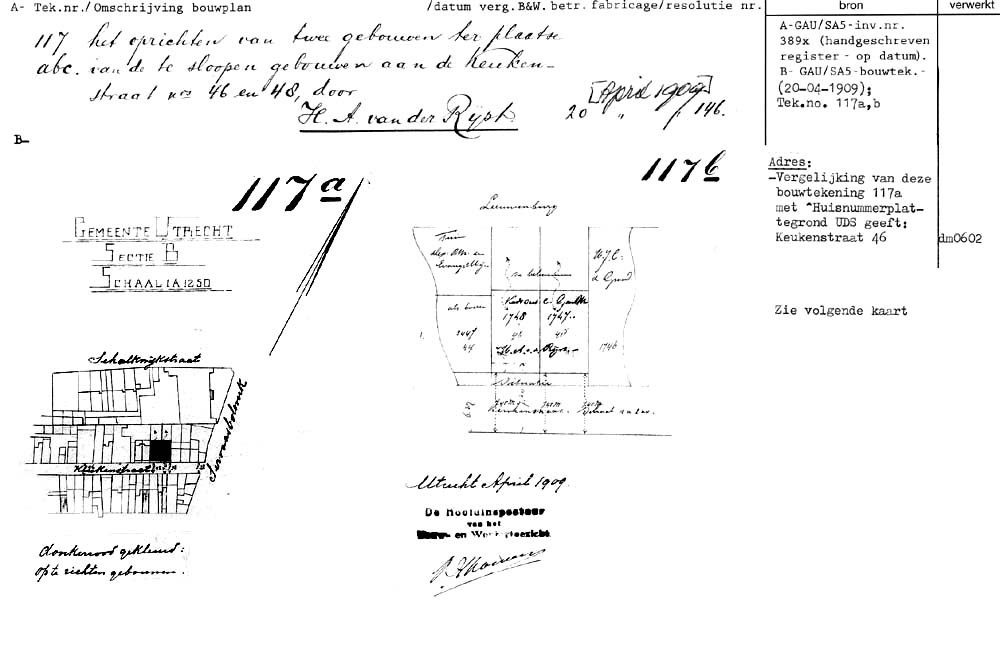 A- Tek.nr./Omschrijving bouwplan /datum verg.B&W. betr. fabricage/resolutie nr.
bron
verwerkt
117 het oprichten van twee gebouwen ter plaatse
abc. van de te sloopen gebouwen aan de Keuken-
straat nrs 46 en 48, door
H. A. van der Rijst.
[April 1909]
20 " / 146.
A-GAU/SA5-inv.nr.
389x (handgeschreven
register - op datum).
B- GAU/SA5-bouwtek.-
(20-04-1909);
Tek.no. 117a,b
B-
Adres:
-Vergelijking van deze
bouwtekening 117a
met ^Huisnummerplat-
tegrond UDS geeft:
Keukenstraat 46
dm0602
Zie volgende kaart
117a
GEMEENTE UTRECHT
SECTIE B
SCHAAL 1A1250
Schalkwijkstraat
Keukenstraat
Servaasbolwerk
donkerrood gekleurd:
op te richten gebouwen.
117b
Leeuwenburg
Tuin
1748 1747
1746
Situatie
Utrecht April 1909.
De Hoofdinspecteur
van het
Bouw- en Woningtoezicht